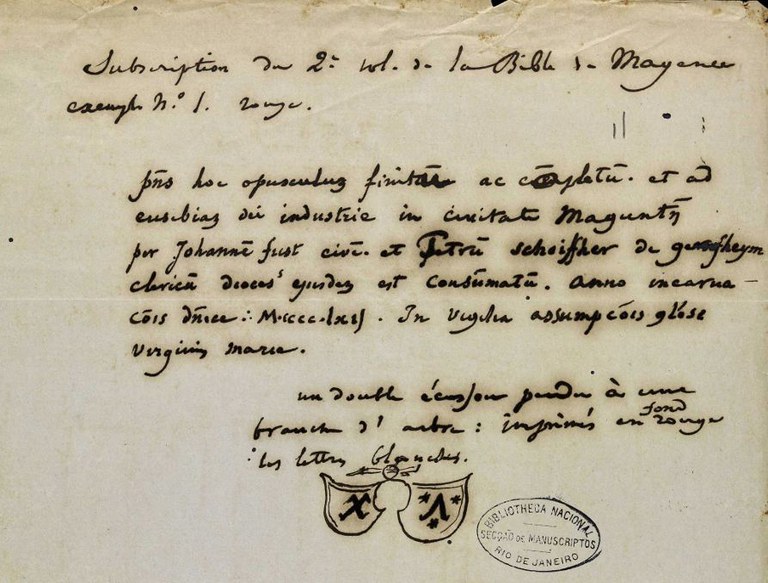 Subscription du 2.e vol. de la Bible de Mayence
exemple N.o 1. rouge.
pñs hoc opusculuʒ finitū ac cōpletū. et ad
eusebiaʒ dei industrie in civitate Maguntñ
per Johannē fust civē. et Petrū schoiffher de gernsheym
clericū dioces' ejusdeʒ est consūmatū. Anno incarna-
cōis dñice. M.cccc.lxij. In vigilia assumpcōis glōse
virginis marie.
un double écusson pendu à une
branche d'arbre : imprimés en fond rouge
les lettres blanches.
X Λ
BIBLIOTHECA NACIONAL
SECÇÃO DE MANUSCRIPTOS
RIO DE JANEIRO